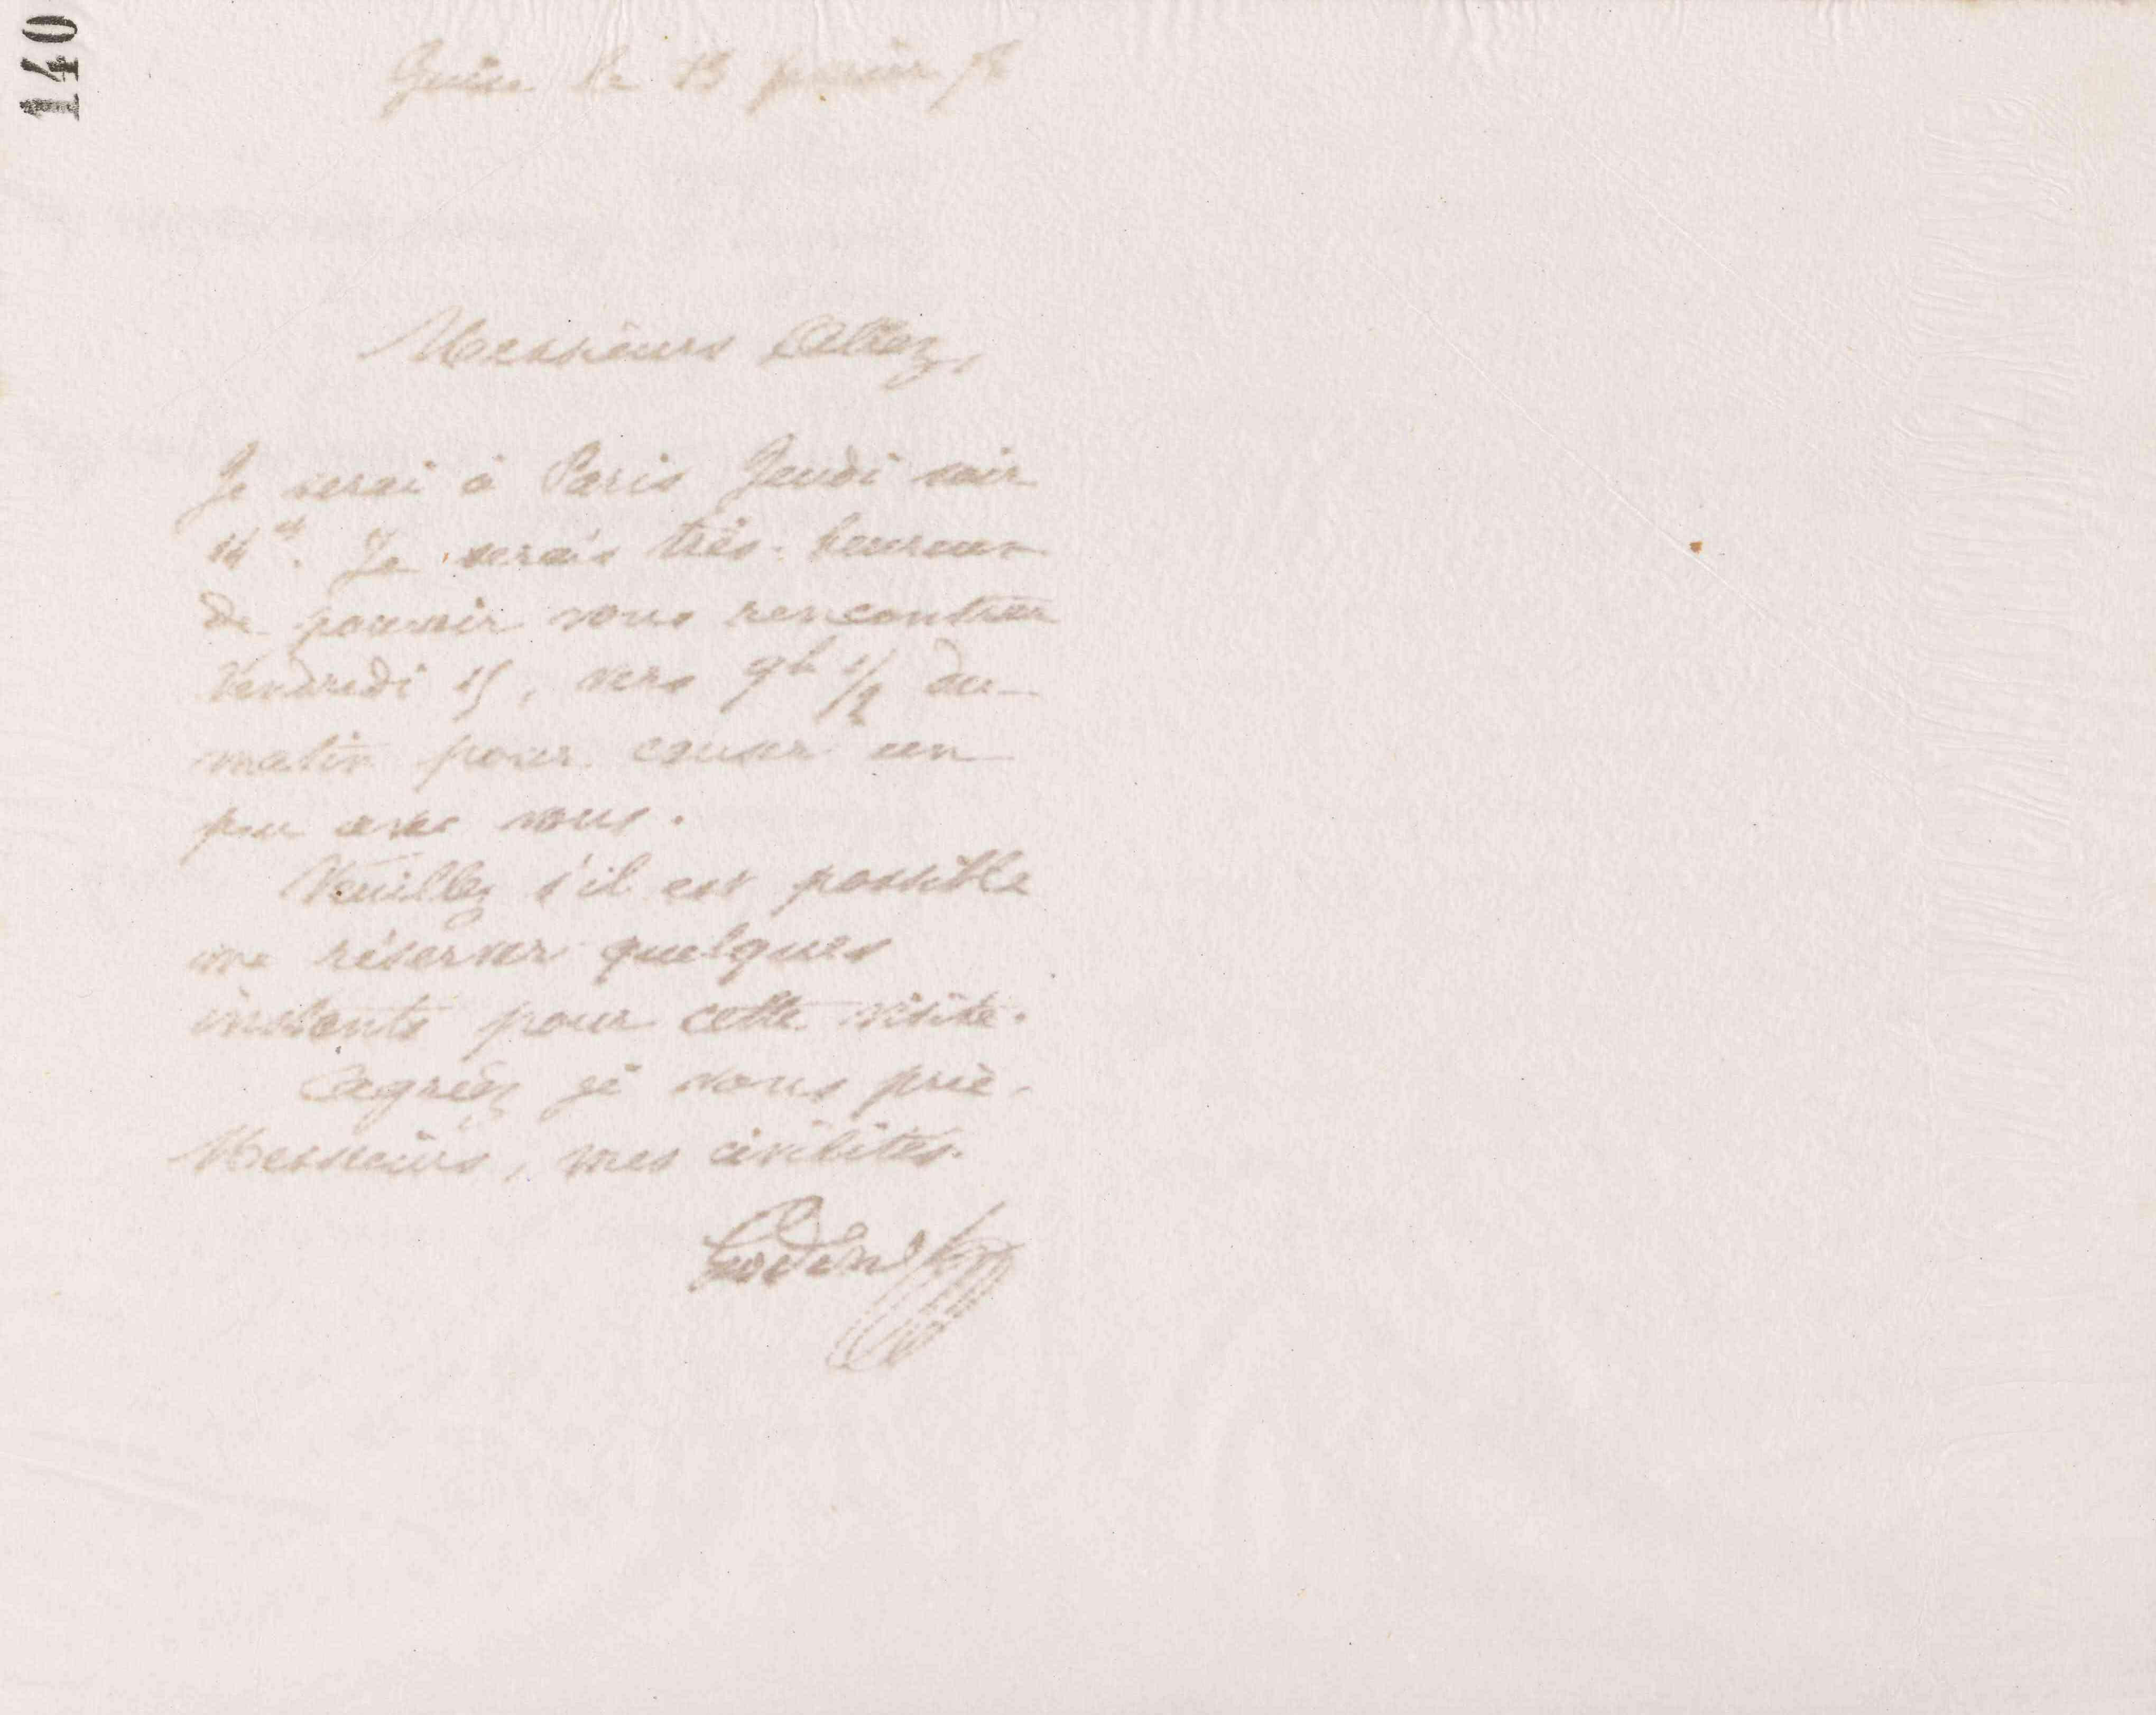 140
Guise le 13 février 78
Messieurs Allez,
Je serai à Paris Jeudi soir
14 ct. Je serais très heureux
de pouvoir vous rencontrer
Vendredi 15, vers 9h 1/2 du
matin pour causer un
peu avec vous.
Veuillez s'il est possible
me réserver quelques
instants pour cette visite.
Agréez je vous prie,
Messieurs, mes civilités.
Godin